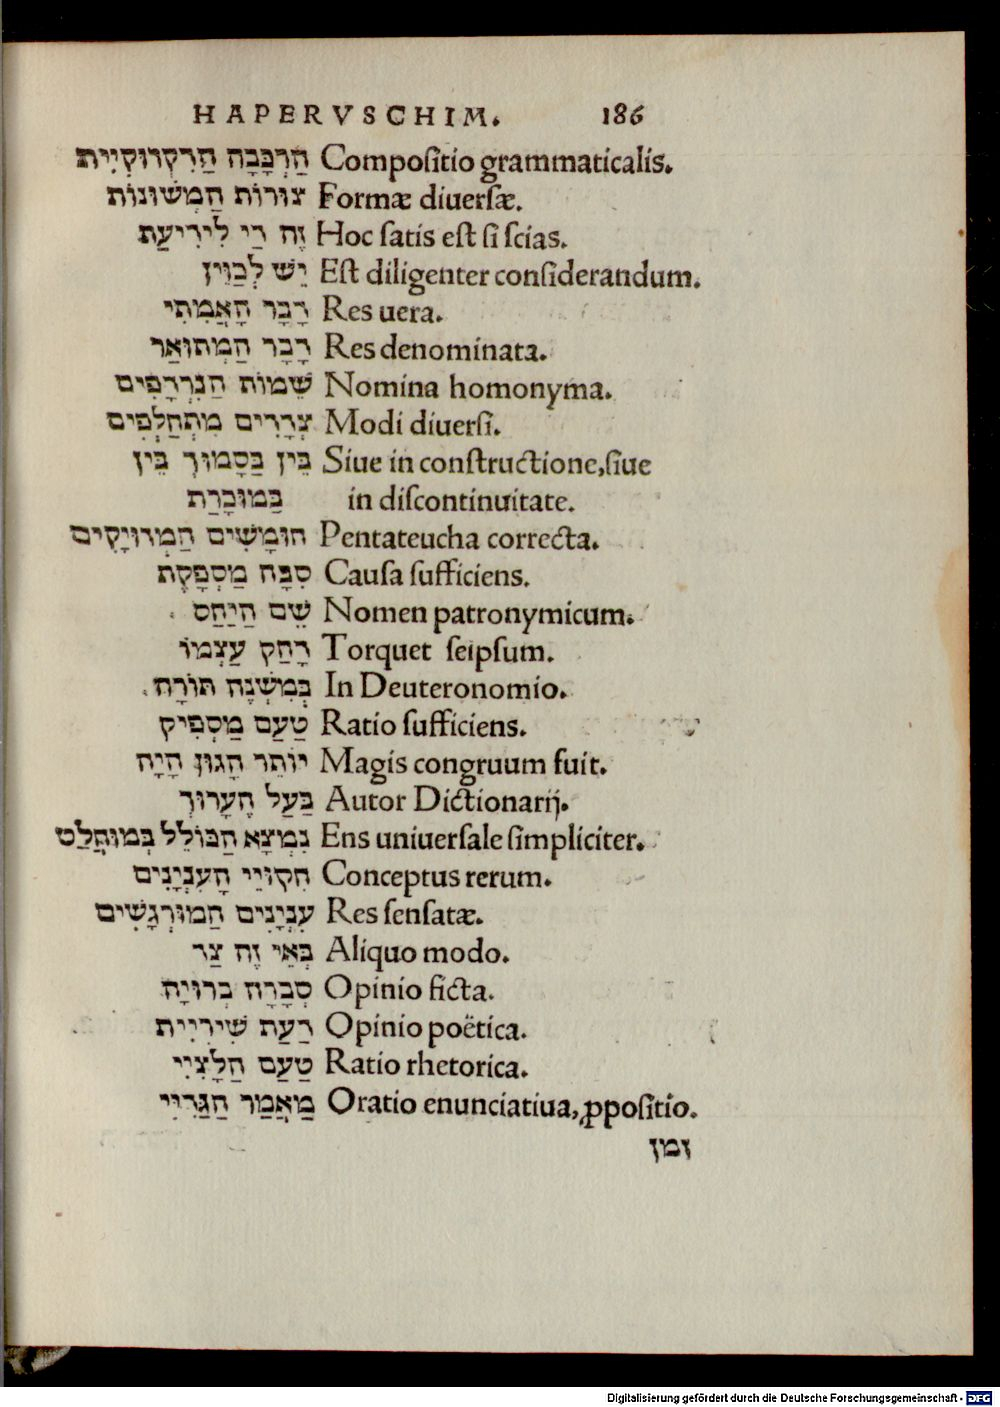 HAPERVSCHIM. 186
הַרְכָּבָה הַדִקְדוּקִיִית Compositio grammaticalis.
צוּרוֹת הַמְשׁוּנוֹת Formæ diuersæ.
זֶה דַי לִידִיעַת Hoc satis est si scias.
יֵשׁ לְכַוֵין Est diligenter considerandum.
דָבָר הָאֲמִתִי Res uera.
דָבָר הַמְתוּאַר Res denominata.
שֵׁמוֹת הַנִרְדָפִים Nomina homonyma.
צְדָדִים מִתְחַלְפִים Modi diuersi.
בֵּין בַּסָמוּךְ בֵּין Siue in constructione, siue
בַּמוּכְרַת in discontinuitate.
חוּמָשִׁים הַמְדוּיָקִים Pentateucha correcta.
סִבָּה מַסְפֶּקֶת Causa sufficiens.
שֵׁם הַיַחַס Nomen patronymicum.
דָחַק עַצְמוֹ Torquet seipsum.
בְּמִשְׁנֶה תּוֹרָה In Deuteronomio.
טַעַם מַסְפִּיק Ratio sufficiens.
יוֹתֵר הָגוּן הָיָה Magis congruum fuit.
בַּעַל הֶעָרוּךְ Autor Dictionarij.
נִמְצָא הַכּוֹלֵל בְּמוּחֲלַט Ens uniuersale simpliciter.
חִקוּיֵי הָעִנְיָנִים Conceptus rerum.
עִנְיָנִים הַמוּרְגָשִׁים Res sensatæ.
בְּאֵי זֶה צַד Aliquo modo.
סְבָרָה בְּדוּיָה Opinio ficta.
דַעַת שִׁירִיִית Opinio poëtica.
טַעַם הַלָצִיִי Ratio rhetorica.
מַאֲמַר הַגַדִיִי Oratio enunciatiua, ꝓpositio.
זמן
Digitalisierung gefördert durch die Deutsche Forschungsgemeinschaft - DFG